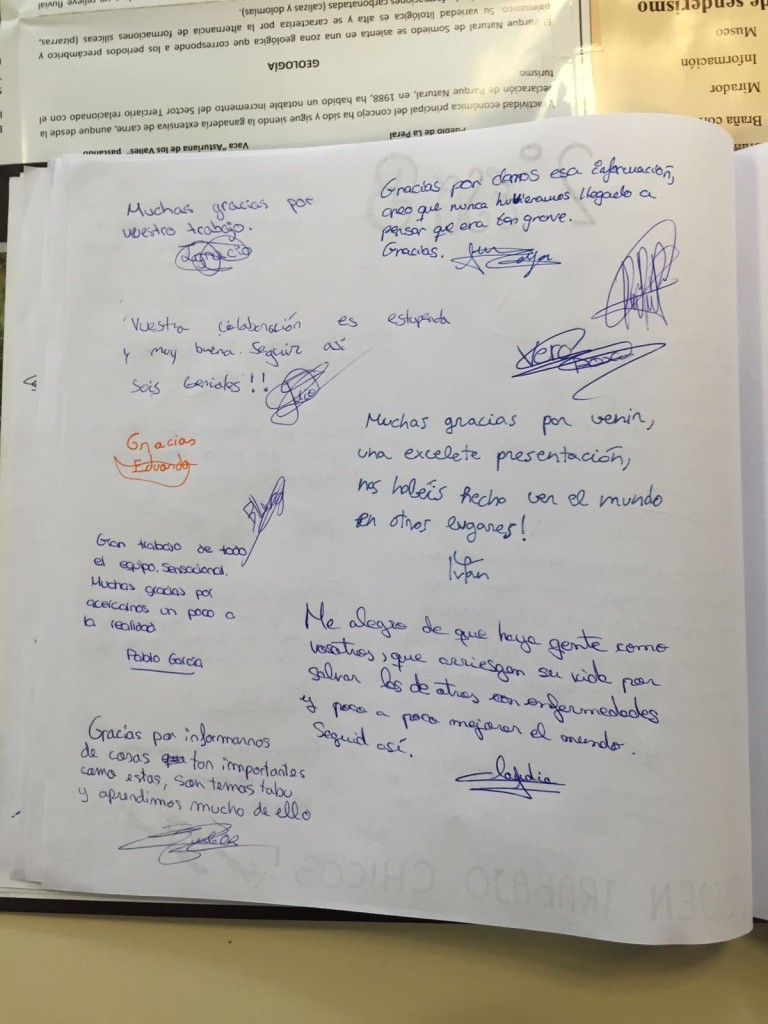 carbonatadas (calizas y dolomías).
paleozoico. Su variedad litológica es alta y se caracteriza por la alternancia de formaciones silíceas (pizarras,
El Parque Natural de Somiedo se asienta en una zona geológica que corresponde a los periodos precámbrico y
GEOLOGÍA
turismo
declaración de Parque Natural, en 1988, ha habido un notable incremento del Sector Terciario relacionado con el
actividad económica principal del concejo ha sido y sigue siendo la ganadería extensiva de carne, aunque desde la
Vaca "Asturiana de los Valles" pastando
Pueblo de La Peral
de senderismo
Museo
Información
Mirador
Braña con
2º
Muchas gracias por
vuestro trabajo.
Ignacio
Gracias por darnos esa información,
creo que nunca hubieramos llegado a
pensar que era tan grave.
Gracias.
Vuestra colaboración es estupenda
y muy buena. Seguir así
Sois Geniales!!
Vero
Gracias
Eduardo
Muchas gracias por venir,
una excelete presentación,
nos habéis hecho ver el mundo
en otros lugares!
Iván
Gran trabajo de todo
el equipo. Sensacional.
Muchas gracias por
acercarnos un poco a
la realidad
Pablo García
Me alegro de que haya gente como
vosotros, que arriesgan su vida por
salvar las de otros con enfermedades
y poco a poco mejorar el mundo.
Seguid así.
Claudia
Gracias por informarnos
de cosas tan importantes
como estas, son temas tabu
y aprendimos mucho de ello
BUEN TRABAJO CHICOS!